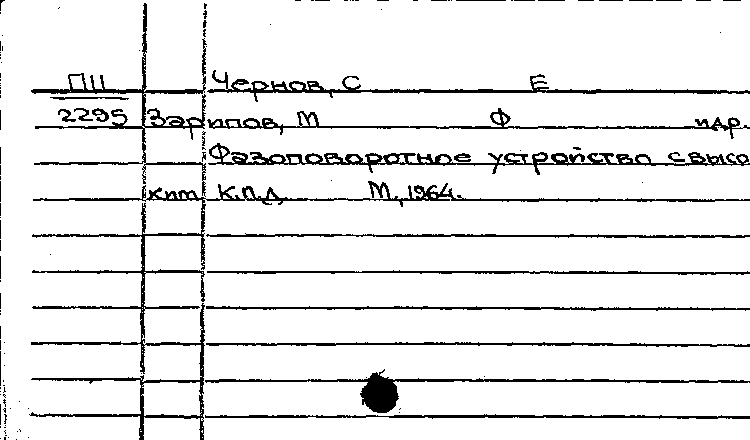 П11 Чернов, С Е
2295 Зарипов, М Ф идр.
Фазоповоротное устройство с высо
ким К.П.Д. М., 1964.